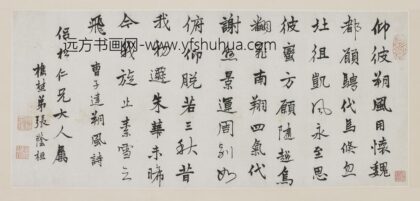 远方画册网- www.yfshuhua.com
仰彼朔風用懷魏
都願騁代馬倏忽
北徂凱風永至思
彼蠻方願隨越鳥
翻飛南翔四氣代
謝懸景運周別如
俯仰脫若三秋昔
我初遷朱華未晞
今我旋止素雪云
飛 曹子建朔風詩
仁兄大人屬
樵野弟張蔭桓